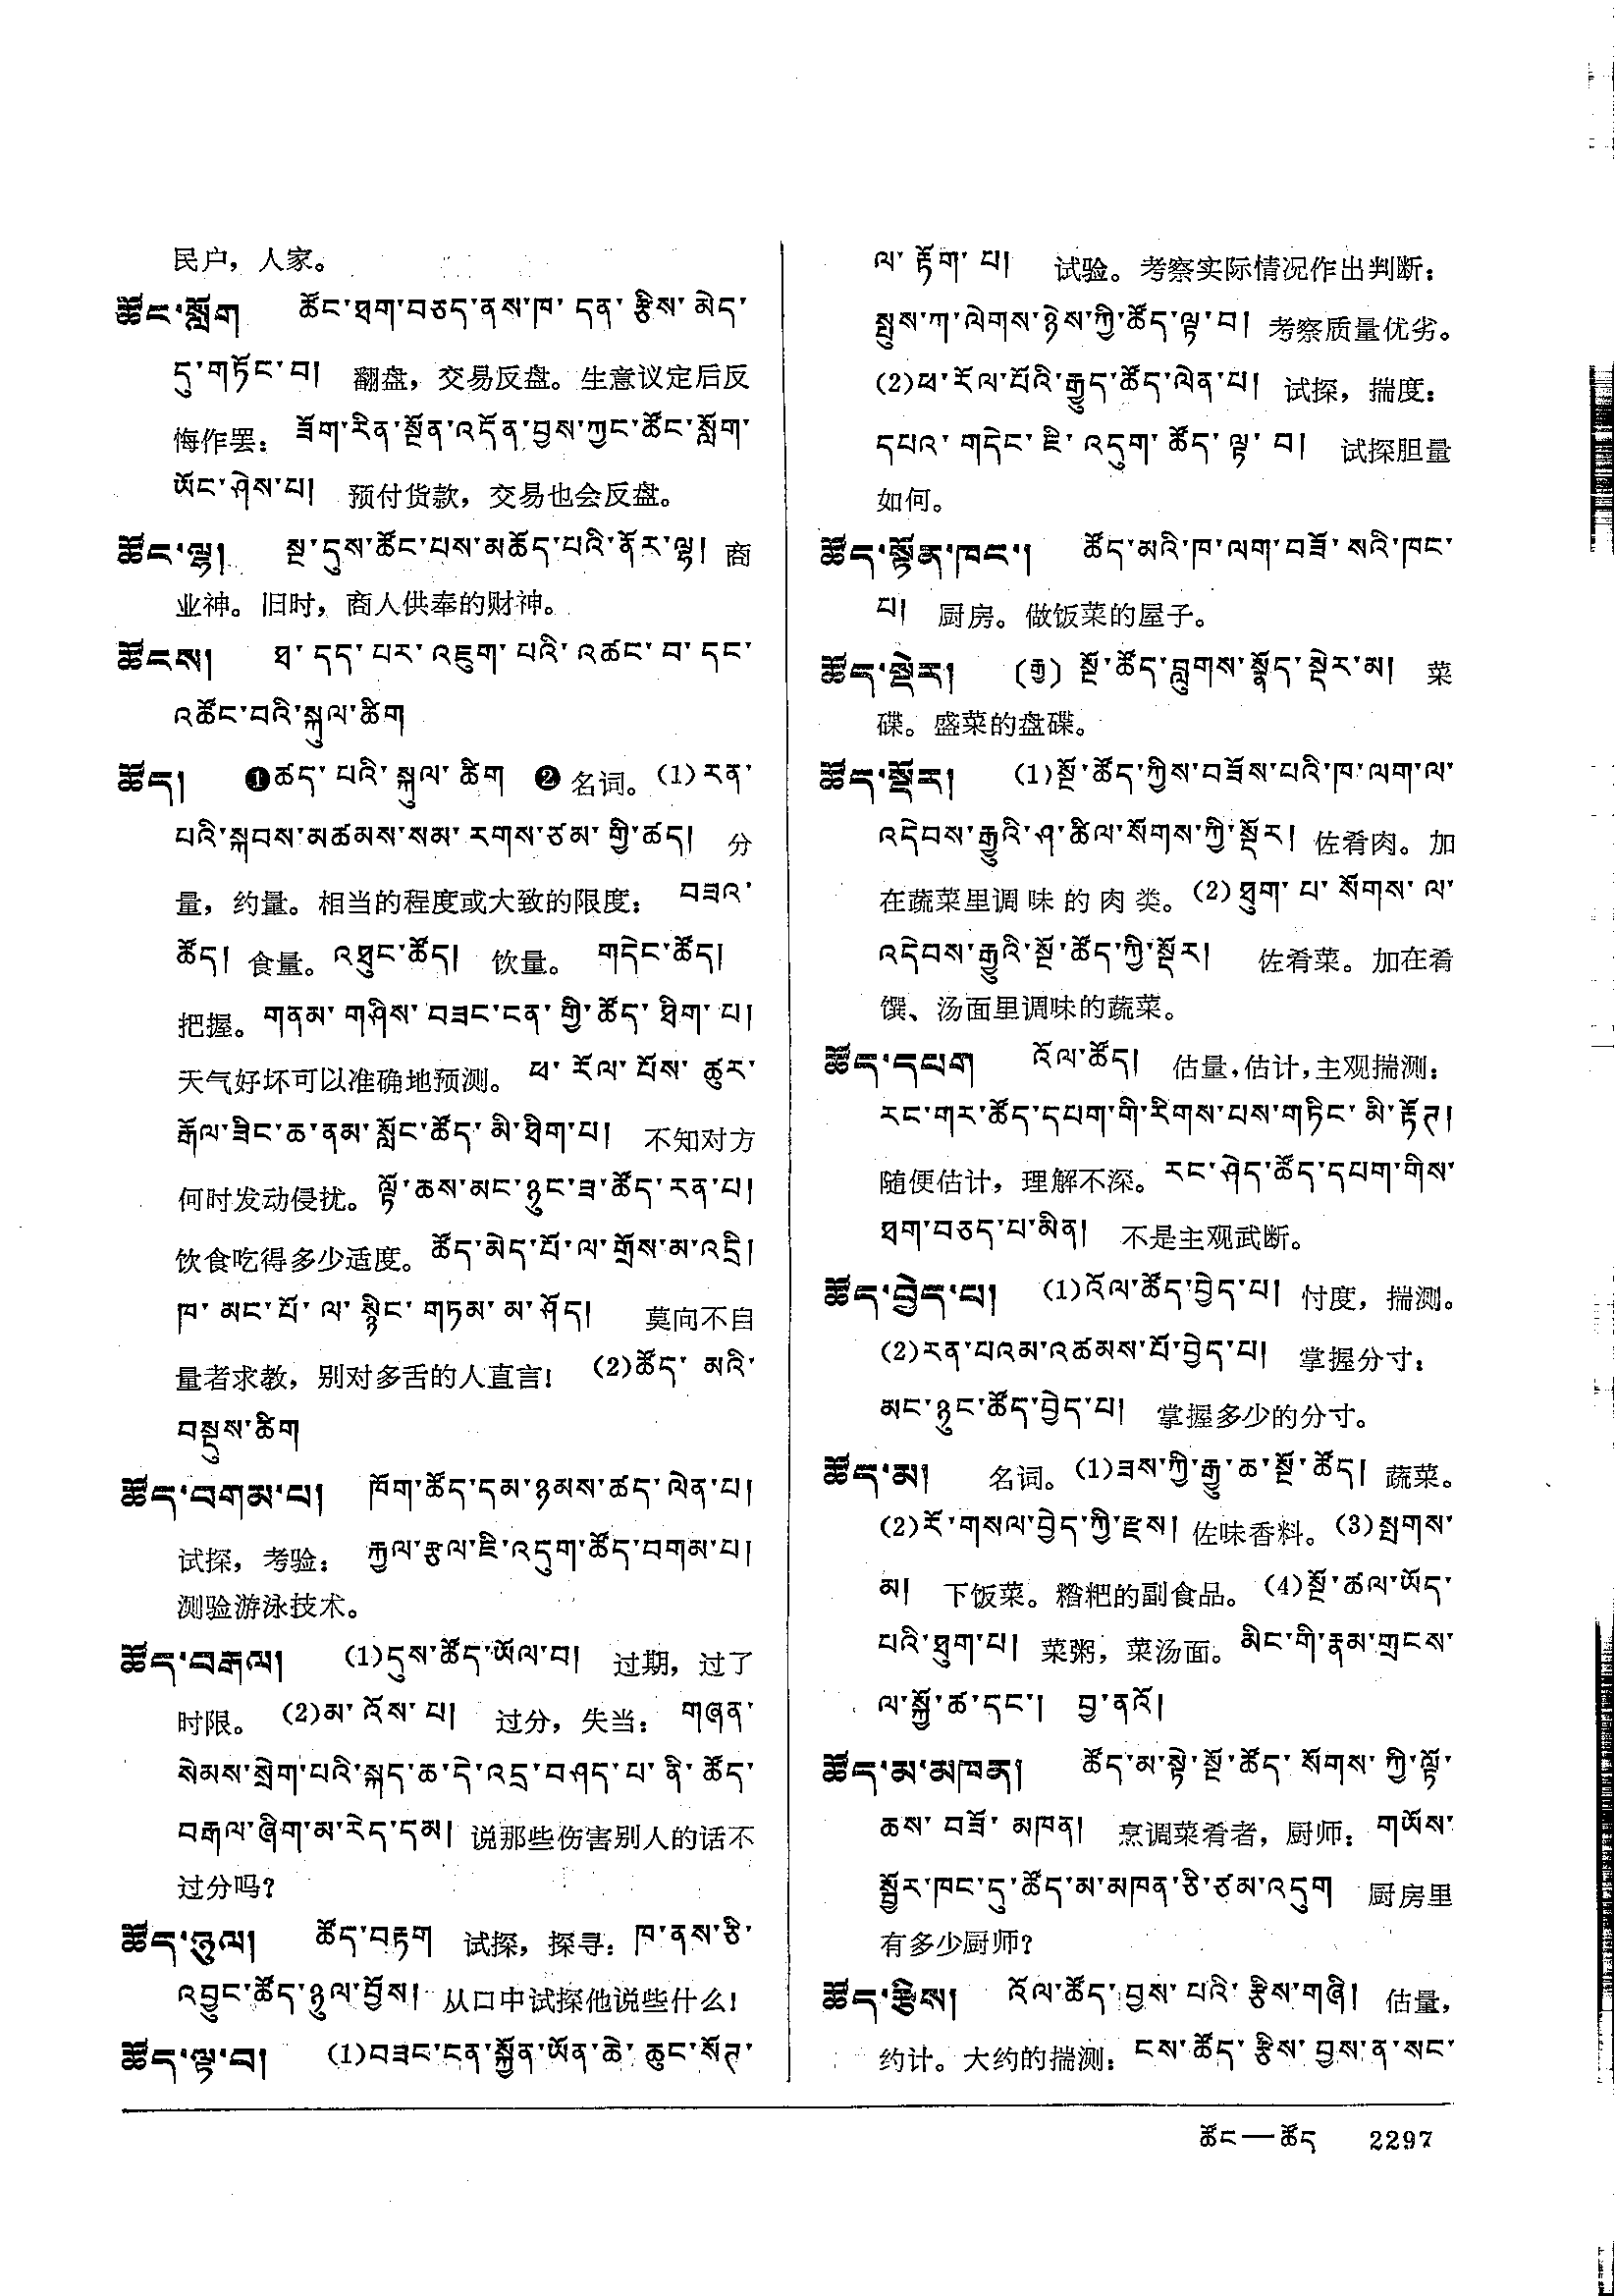 民户，人家。
ཚོང་སློག ཚོང་ཐག་བཅད་ནས་ཁ་དན་རྩིས་མེད་
དུ་གཏོང་བ། 翻盘，交易反盘。生意议定后反
悔作罢： ཟོག་རིན་སྔོན་འདོན་བྱས་ཀྱང་ཚོང་སློག་
ཡོང་ཤེས་པ། 预付货款，交易也会反盘。
ཚོང་ལྷ། སྔ་དུས་ཚོང་པས་མཆོད་པའི་ནོར་ལྷ། 商
业神。旧时，商人供奉的财神。
ཚོངས། ཐ་དད་པར་འཇུག་པའི་འཚང་བ་དང་
འཚོང་བའི་སྐུལ་ཚིག
ཚོད། ❶ཚད་པའི་སྐུལ་ཚིག ❷名词。(1)རན་
པའི་སྐབས་མཚམས་སམ་རགས་ཙམ་གྱི་ཚད། 分
量，约量。相当的程度或大致的限度： བཟའ་
ཚོད། 食量。འཐུང་ཚོད། 饮量。 གདེང་ཚོད།
把握。གནམ་གཤིས་བཟང་ངན་གྱི་ཚོད་ཐིག་པ།
天气好坏可以准确地预测。 ཕ་རོལ་པོས་ཚུར་
རྒོལ་ཟིང་ཆ་ནམ་སློང་ཚོད་མི་ཐིག་པ། 不知对方
何时发动侵扰。ལྟོ་ཆས་མང་ཉུང་ཟ་ཚོད་རན་པ།
饮食吃得多少适度。ཚོད་མེད་པོ་ལ་གྲོས་མ་འདྲི།
ཁ་མང་པོ་ལ་སྙིང་གཏམ་མ་ཤོད། 莫向不自
量者求教，别对多舌的人直言！ (2)ཚོད་མའི་
བསྡུས་ཚིག
ཚོད་བགམ་པ། ཁོག་ཚོད་དམ་ཉམས་ཚད་ལེན་པ།
试探，考验： རྐྱལ་རྩལ་ཇི་འདུག་ཚོད་བགམ་པ།
测验游泳技术。
ཚོད་བརྒལ། (1)དུས་ཚོད་ཡོལ་བ། 过期，过了
时限。 (2)མ་འོས་པ། 过分，失当： གཞན་
སེམས་སྲེག་པའི་སྐད་ཆ་དེ་འདྲ་བཤད་པ་ནི་ཚོད་
བརྒལ་ཞིག་མ་རེད་དམ། 说那些伤害别人的话不
过分吗？
ཚོད་ཉུལ། ཚོད་བརྟག 试探，探寻：ཁ་ནས་ཅི་
འབྱུང་ཚོད་ཉུལ་བྱོས། 从口中试探他说些什么！
ཚོད་ལྟ་བ། (1)བཟང་ངན་སྐྱོན་ཡོན་ཆེ་ཆུང་སོཊ་
ལ་རྟོག་པ། 试验。考察实际情况作出判断：
སྤུས་ཀ་ལེགས་ཉེས་ཀྱི་ཚོད་ལྟ་བ། 考察质量优劣。
(2)ཕ་རོལ་པོའི་རྒྱུད་ཚོད་ལེན་པ། 试探，揣度：
དཔའ་གདེང་ཇི་འདུག་ཚོད་ལྟ་བ། 试探胆量
如何。
ཚོད་སྟོན་ཁང་། ཚོད་མའི་ཁ་ལག་བཟོ་སའི་ཁང་
པ། 厨房。做饭菜的屋子。
ཚོད་སྡེར། (རྒྱ) སྔོ་ཚོད་བླུགས་སྣོད་སྡེར་མ། 菜
碟。盛菜的盘碟。
ཚོད་སྡོར། (1)སྔོ་ཚོད་ཀྱིས་བཟོས་པའི་ཁ་ལག་ལ་
འདེབས་རྒྱུའི་ཤ་ཚིལ་སོགས་ཀྱི་སྡོར། 佐肴肉。加
在蔬菜里调味的肉类。(2)ཐུག་པ་སོགས་ལ་
འདེབས་རྒྱུའི་སྔོ་ཚོད་ཀྱི་སྡོར། 佐肴菜。加在肴
馔、汤面里调味的蔬菜。
ཚོད་དཔག འོལ་ཚོད། 估量，估计，主观揣测：
རང་གར་ཚོད་དཔག་གི་རིགས་པས་གཏིང་མི་རྟོཊ།
随便估计，理解不深。རང་ཤེད་ཚོད་དཔག་གིས་
ཐག་བཅད་པ་མིན། 不是主观武断。
ཚོད་བྱེད་པ། (1)འོལ་ཚོད་བྱེད་པ། 忖度，揣测。
(2)རན་པའམ་འཚམས་པོ་བྱེད་པ། 掌握分寸：
མང་ཉུང་ཚོད་བྱེད་པ། 掌握多少的分寸。
ཚོད་མ། 名词。(1)ཟས་ཀྱི་རྒྱུ་ཆ་སྔོ་ཚོད། 蔬菜。
(2)རོ་གསལ་བྱེད་ཀྱི་རྫས། 佐味香料。(3)སྤགས་
མ། 下饭菜。糌粑的副食品。(4)སྔོ་ཚལ་ཡོད་
པའི་ཐུག་པ། 菜粥，菜汤面。མིང་གི་རྣམ་གྲངས་
ལ་སྐྱོ་ཚ་དང་། བྱ་ནའོ།
ཚོད་མ་མཁན། ཚོད་མ་སྟེ་སྔོ་ཚོད་སོགས་ཀྱི་ལྟོ་
ཆས་བཟོ་མཁན། 烹调菜肴者，厨师：གཡོས་
སྦྱོར་ཁང་དུ་ཚོད་མ་མཁན་ཅི་ཙམ་འདུག 厨房里
有多少厨师？
ཚོད་རྩིས། འོལ་ཚོད་བྱས་པའི་རྩིས་གཞི། 估量，
约计。大约的揣测：ངས་ཚོད་རྩིས་བྱས་ན་སང་
ཚོང—ཚོད 2297